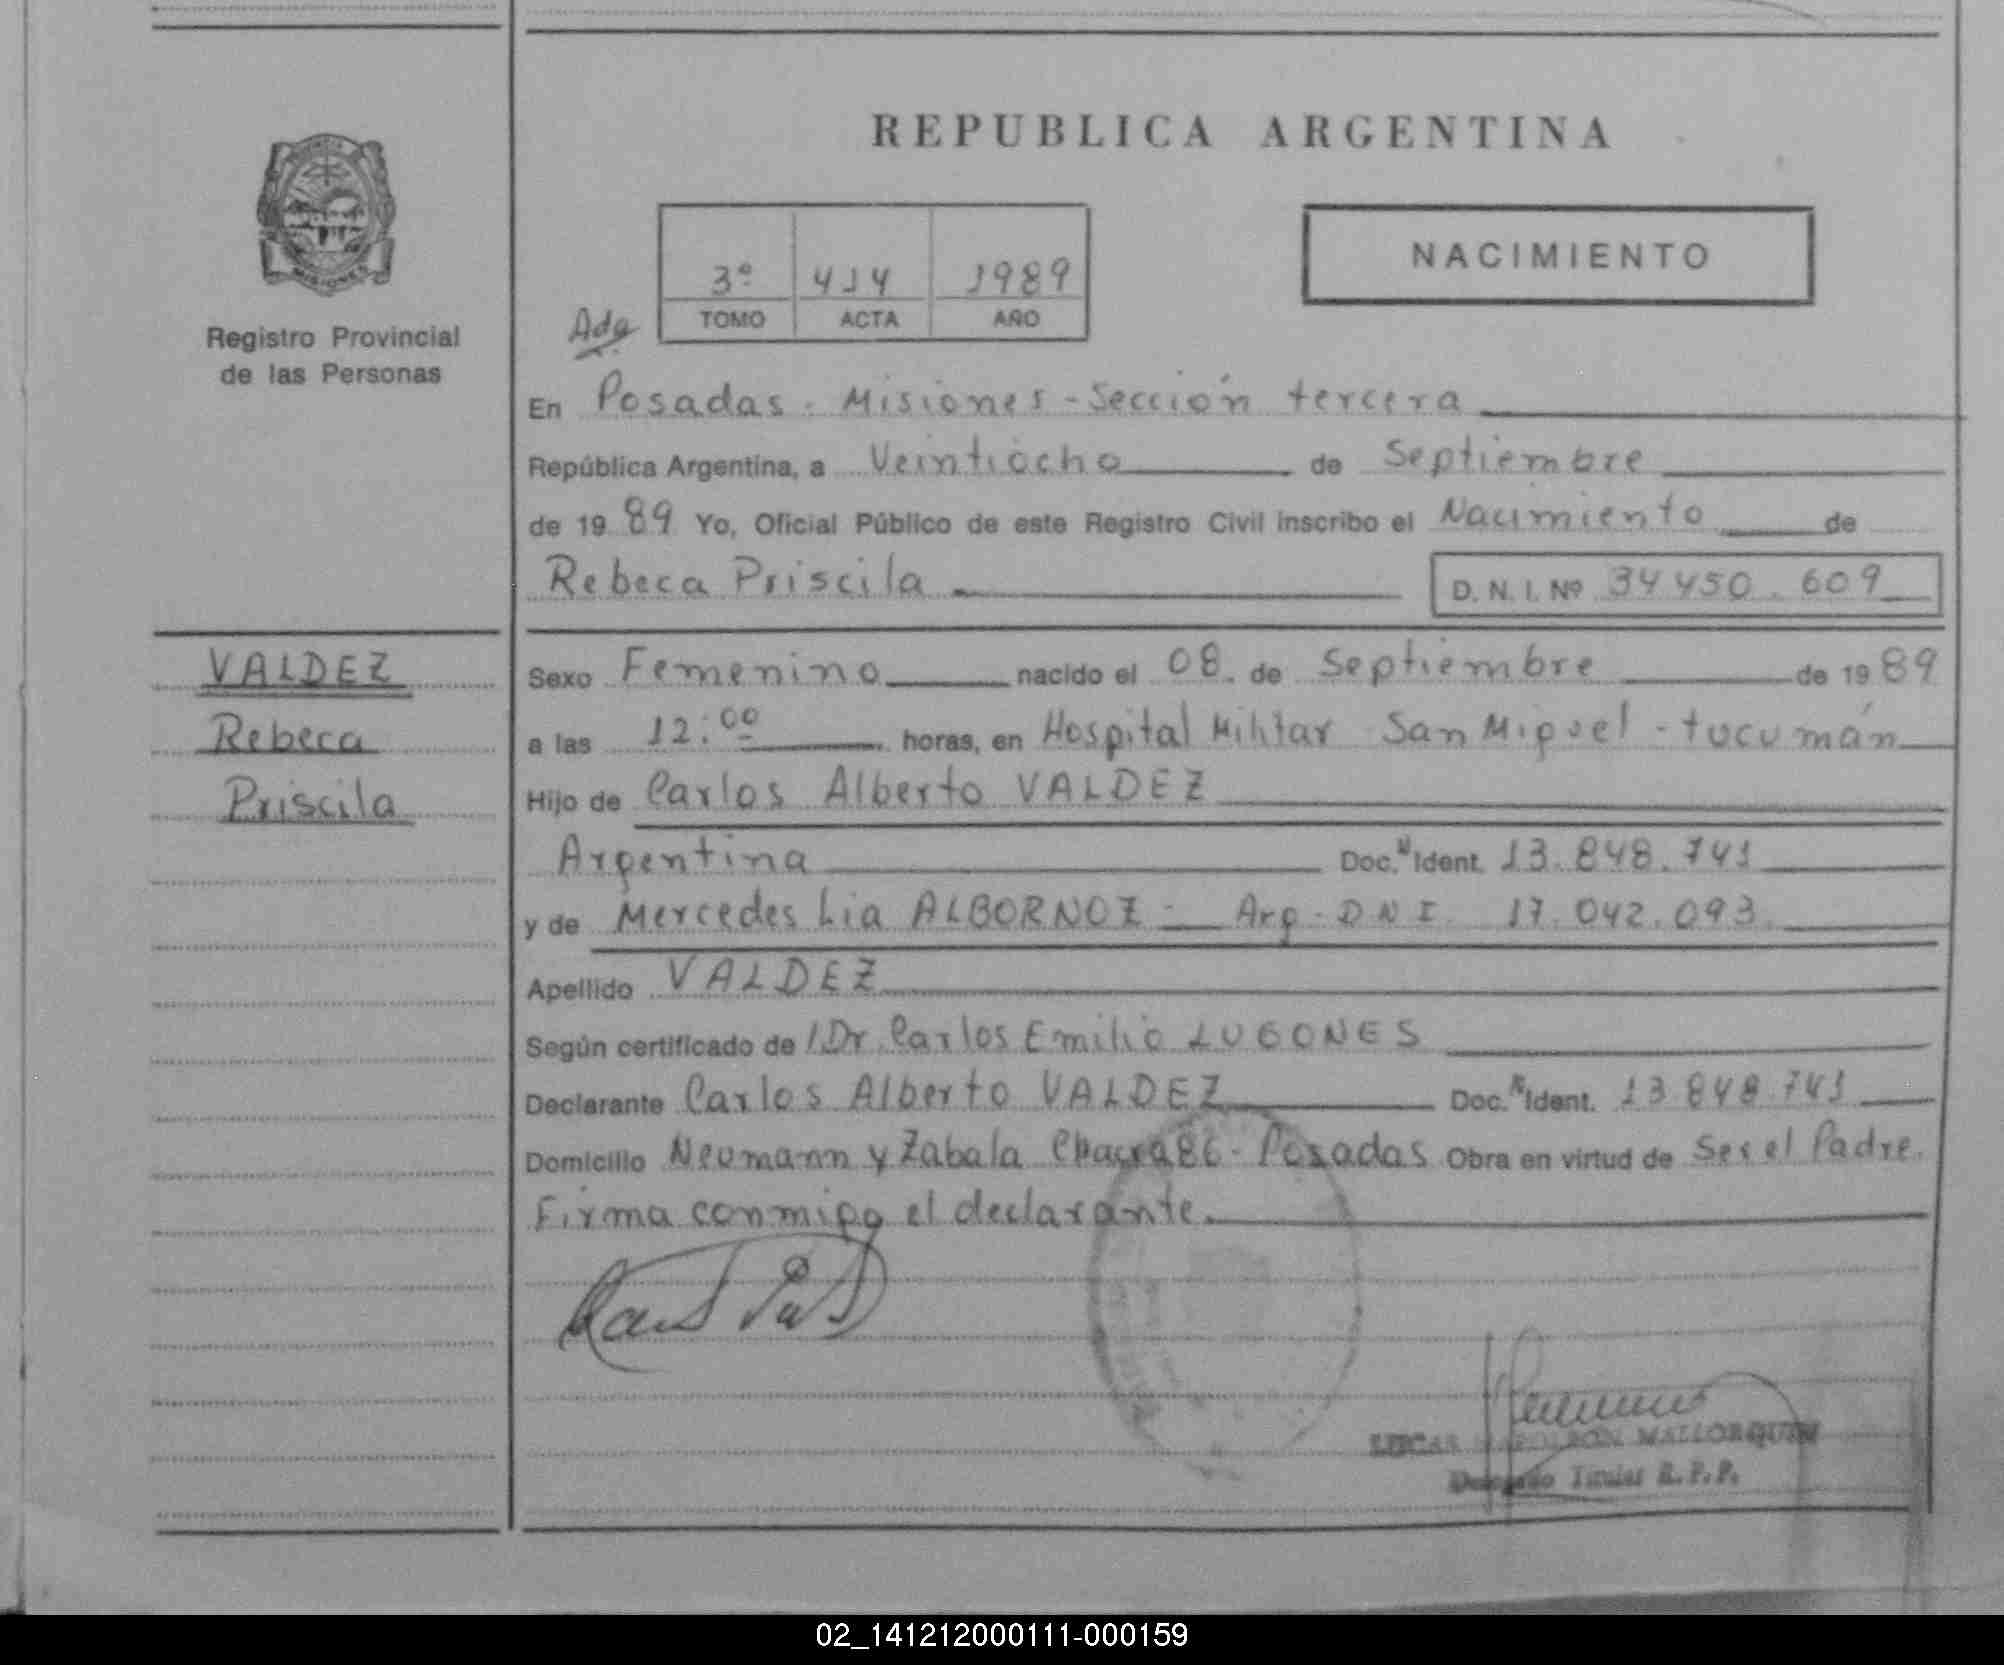 REPUBLICA ARGENTINA
MISIONES
Registro Provincial
de las Personas
3º 414 1989
TOMO ACTA AÑO
NACIMIENTO
En Posadas - Misiones - Sección tercera
República Argentina, a Veintiocho de Septiembre
de 19 89 Yo, Oficial Público de este Registro Civil inscribo el Nacimiento de
Rebeca Priscila D. N. I. Nº 34450.609
VALDEZ
Rebeca
Priscila
Sexo Femenino nacido el 08. de Septiembre de 19 89
a las 12:00 horas, en Hospital Militar San Miguel - tucumán
Hijo de Carlos Alberto VALDEZ
Argentina Doc. Ident. 13.848.741
y de Mercedes Lia ALBORNOZ - Arg - D N I. 17.042.093.
Apellido VALDEZ
Según certificado de Dr. Carlos Emilio LUGONES
Declarante Carlos Alberto VALDEZ Doc. Ident. 13 848.741
Domicilio Neumann y Zabala Chacra 86 - Posadas Obra en virtud de Ser el Padre.
Firma conmigo el declarante.
NAPOLEON MALLORQUIN
Delegado Titular R. P. P.
02_141212000111-000159